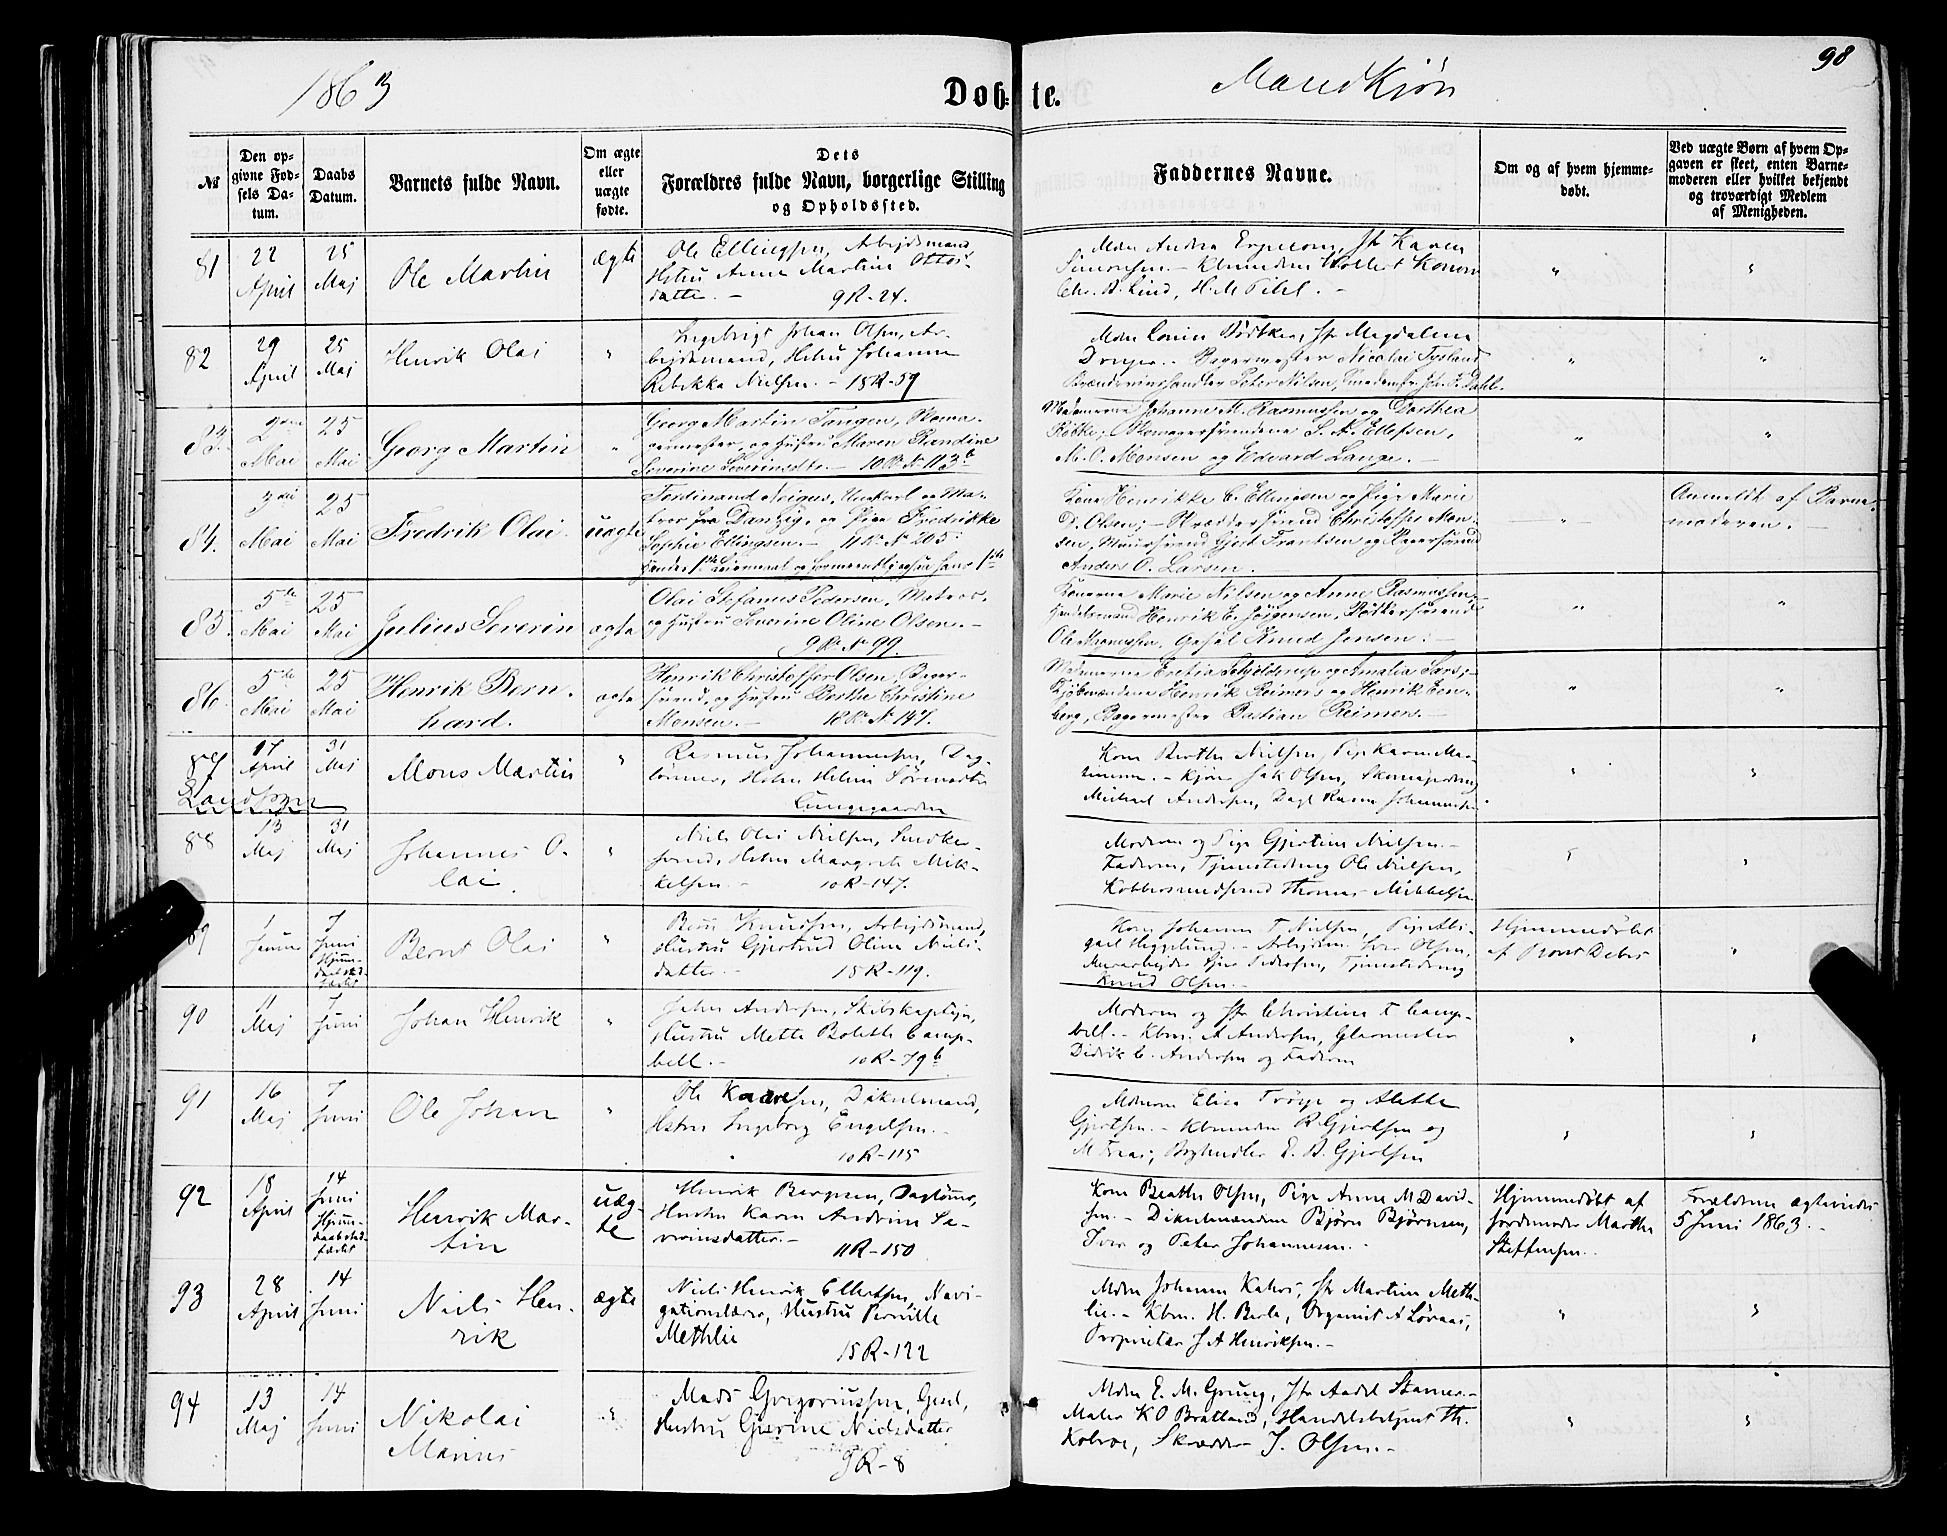 98
1863
Døbte.
Mandkjøn
№
Den opgivne Fødsels Datum.
Daabs Datum.
Barnets fulde Navn.
Om ægte eller uægte fødte.
Dets Forældres fulde Navn, borgerlige Stilling og Opholdssted.
Faddernes Navne.
Om og af hvem hjemmedøbt.
Ved uægte Børn af hvem Opgaven er skeet, enten Barnemoderen eller hvilket bekjendt og troværdigt Medlem af Menigheden.
81
22 April
25 Maj
Ole Martin
ægte
Ole Ellingsen, Arbejdsmand,
Hstru Anne Martine Ottos-
datter. - 9 R - 24.
Simonsen. -
Chr. B. Lind,
82
29 April
25 Maj
Henrik Olai
"
Ingebrigt Johan Olsen, Ar-
bejdsmand, Hstru Johanne
Rebekka Nielsen. - 15 R - 59
Dreyer. - Bagermester Nicolai Tysland
Brændeviinshandler Peter Nilsen,
83.
2den Mai
25 Mai
Georg Martin
"
Georg Martin Tangen, Skoma-
germester, og Hustru Maren Randine
Severine Severinsdtr. - 10 R. N 113 b
Madamerne Johanne M. Rasmussen og Dorthea
Købke; Skomagersvendene S. A. Ellefsen,
M. O. Monsen og Edvard Lange. -
84.
3die Mai
25 Mai
Fredrik Olai
uægte
Ferdinand Neigus, Ungkarl og Ma-
tros fra Danzig, og Pige Fredrikke
Sophie Ellingsen. - 11 R. N 205.
Kone Henrikke C. Ellingsen og Pige Marie
D. Olsen; - Skræddersvend Christoffer Mon-
sen, Muursvend Gjert Frantsen og Bagersvend
Anders O. Larsen.
Anmeldt af Barne-
moderen.
85.
5te Mai
25 Mai
Julius Severin
ægte
Olai Stefanus Pedersen, Matros,
og Hustru Severine Oline Olsen. -
9 R. N 99.
Konerne Marie Nilsen og Anne Rasmussen,
Handelsmand Henrik E. Jørgensen, Bødkersvend
Ole Magnussen, Gesel Knud Jensen. -
86.
5te Mai
25 Mai
Henrik Bern-
hard.
ægte
Henrik Christoffer Olsen, Bager-
svend, og Hustru Berthe Christine
Monsen. - 18 R. N 147.
Madamerne Eretia Schjelderup og Amalia Sars;
Kjøbmændene Henrik Reimers og Henrik Een-
berg, Bagermester Bastian Reimers. -
87
Landsogn
17 April
31 Maj
Mons Martin
"
Rasmus Johannessen, Dag-
Lungegaarden
Kone Berthe Nielsen, Pige Karen Ma-
Michael Andersen, Dagl. Rasm Johannessen
88
13 Maj
31 Maj
Johannes O-
lai.
"
Niels Olai Nielsen, Snedker-
svend, Hstru Margrethe Mik-
kelsen. - 10 R - 147.
Moderen og Pige Gjertine Nielsen. -
Faderen, Tjenestedreng Ole Nielsen,
Kobbersmedsvend Thomas Mikkelsen
89
7 Juni
Bernt Olai
"
Knudsen, Arbejdsmand,
Hustru Gjertrud Oline Niels-
datter. - 15 R - 119.
Kone Johanne T Nielsen, Pige Abi-
gael Heggelund. - Arbejdsm. Iver Olsen,
Murarbejder Pedersen, Tjenestedreng
Knud Olsen. -
Hjemmedøbt
af Provst Debes
90
Maj
7 Juni
Johan Henrik
"
John Andersen, Skibskaptejn,
Hustru Mette Bolette Camp-
bell. - 10 R - 79 b
Moderen og Jfr Christine T Camp-
bell. - Kbm. A Andersen, Glarmester
Didrik C. Andersen og Faderen
91
16 Maj
7 Juni
Ole Johan
"
Ole Kaaresen, Dikselmand,
Hstru Ingeborg Engelsen. -
10 R - 115
Mdmm Elisa Trøye og Alette
Gjertsen. - Kbmndene R Gjertsen og
M Faas, Boghandler E. B. Gjertsen
92
18 April
14 Juni
Hjemmedaab stadfæstet
Henrik Mar-
tin
uæg-
te
Henrik Bergesen, Dagløner,
Hustru Karen Andrine Se-
verinsdatter. -
11 R - 150
Kone Beathe Olsen, Pige Anne M David-
sen. - Dikselmændene Bjørn Bjørnsen,
Iver og Peter Johannesen. -
Hjemmedøbt af
Jordemoder Marthe
Steffensen.
Forældrene ægteviede
5 Juni 1863. -
93
28 April
14 Juni
Niels Hen-
rik
ægte
Niels Henrik Ellertsen, Navi-
gationslærer, Hustru Pernille
Methlie
15 R - 122
Mdm Johanne Kahrs, Jfr Martine Meth-
lie. - Kbm. H. Berle, Organist A Løvaas,
Proprietær J A Henriksen. -
94
13 Maj
14 Juni
Nikolai
Marius
"
Mads Gregoriussen, Gesel,
Hustru Gjerine Nielsdatter
9 R - 8
Mdm E. M. Grung, Jfr Aadel Stamer. -
Maler K O Bratland, Handelsbetjent Th.
Kobroe, Skrædder J. Olsen. -